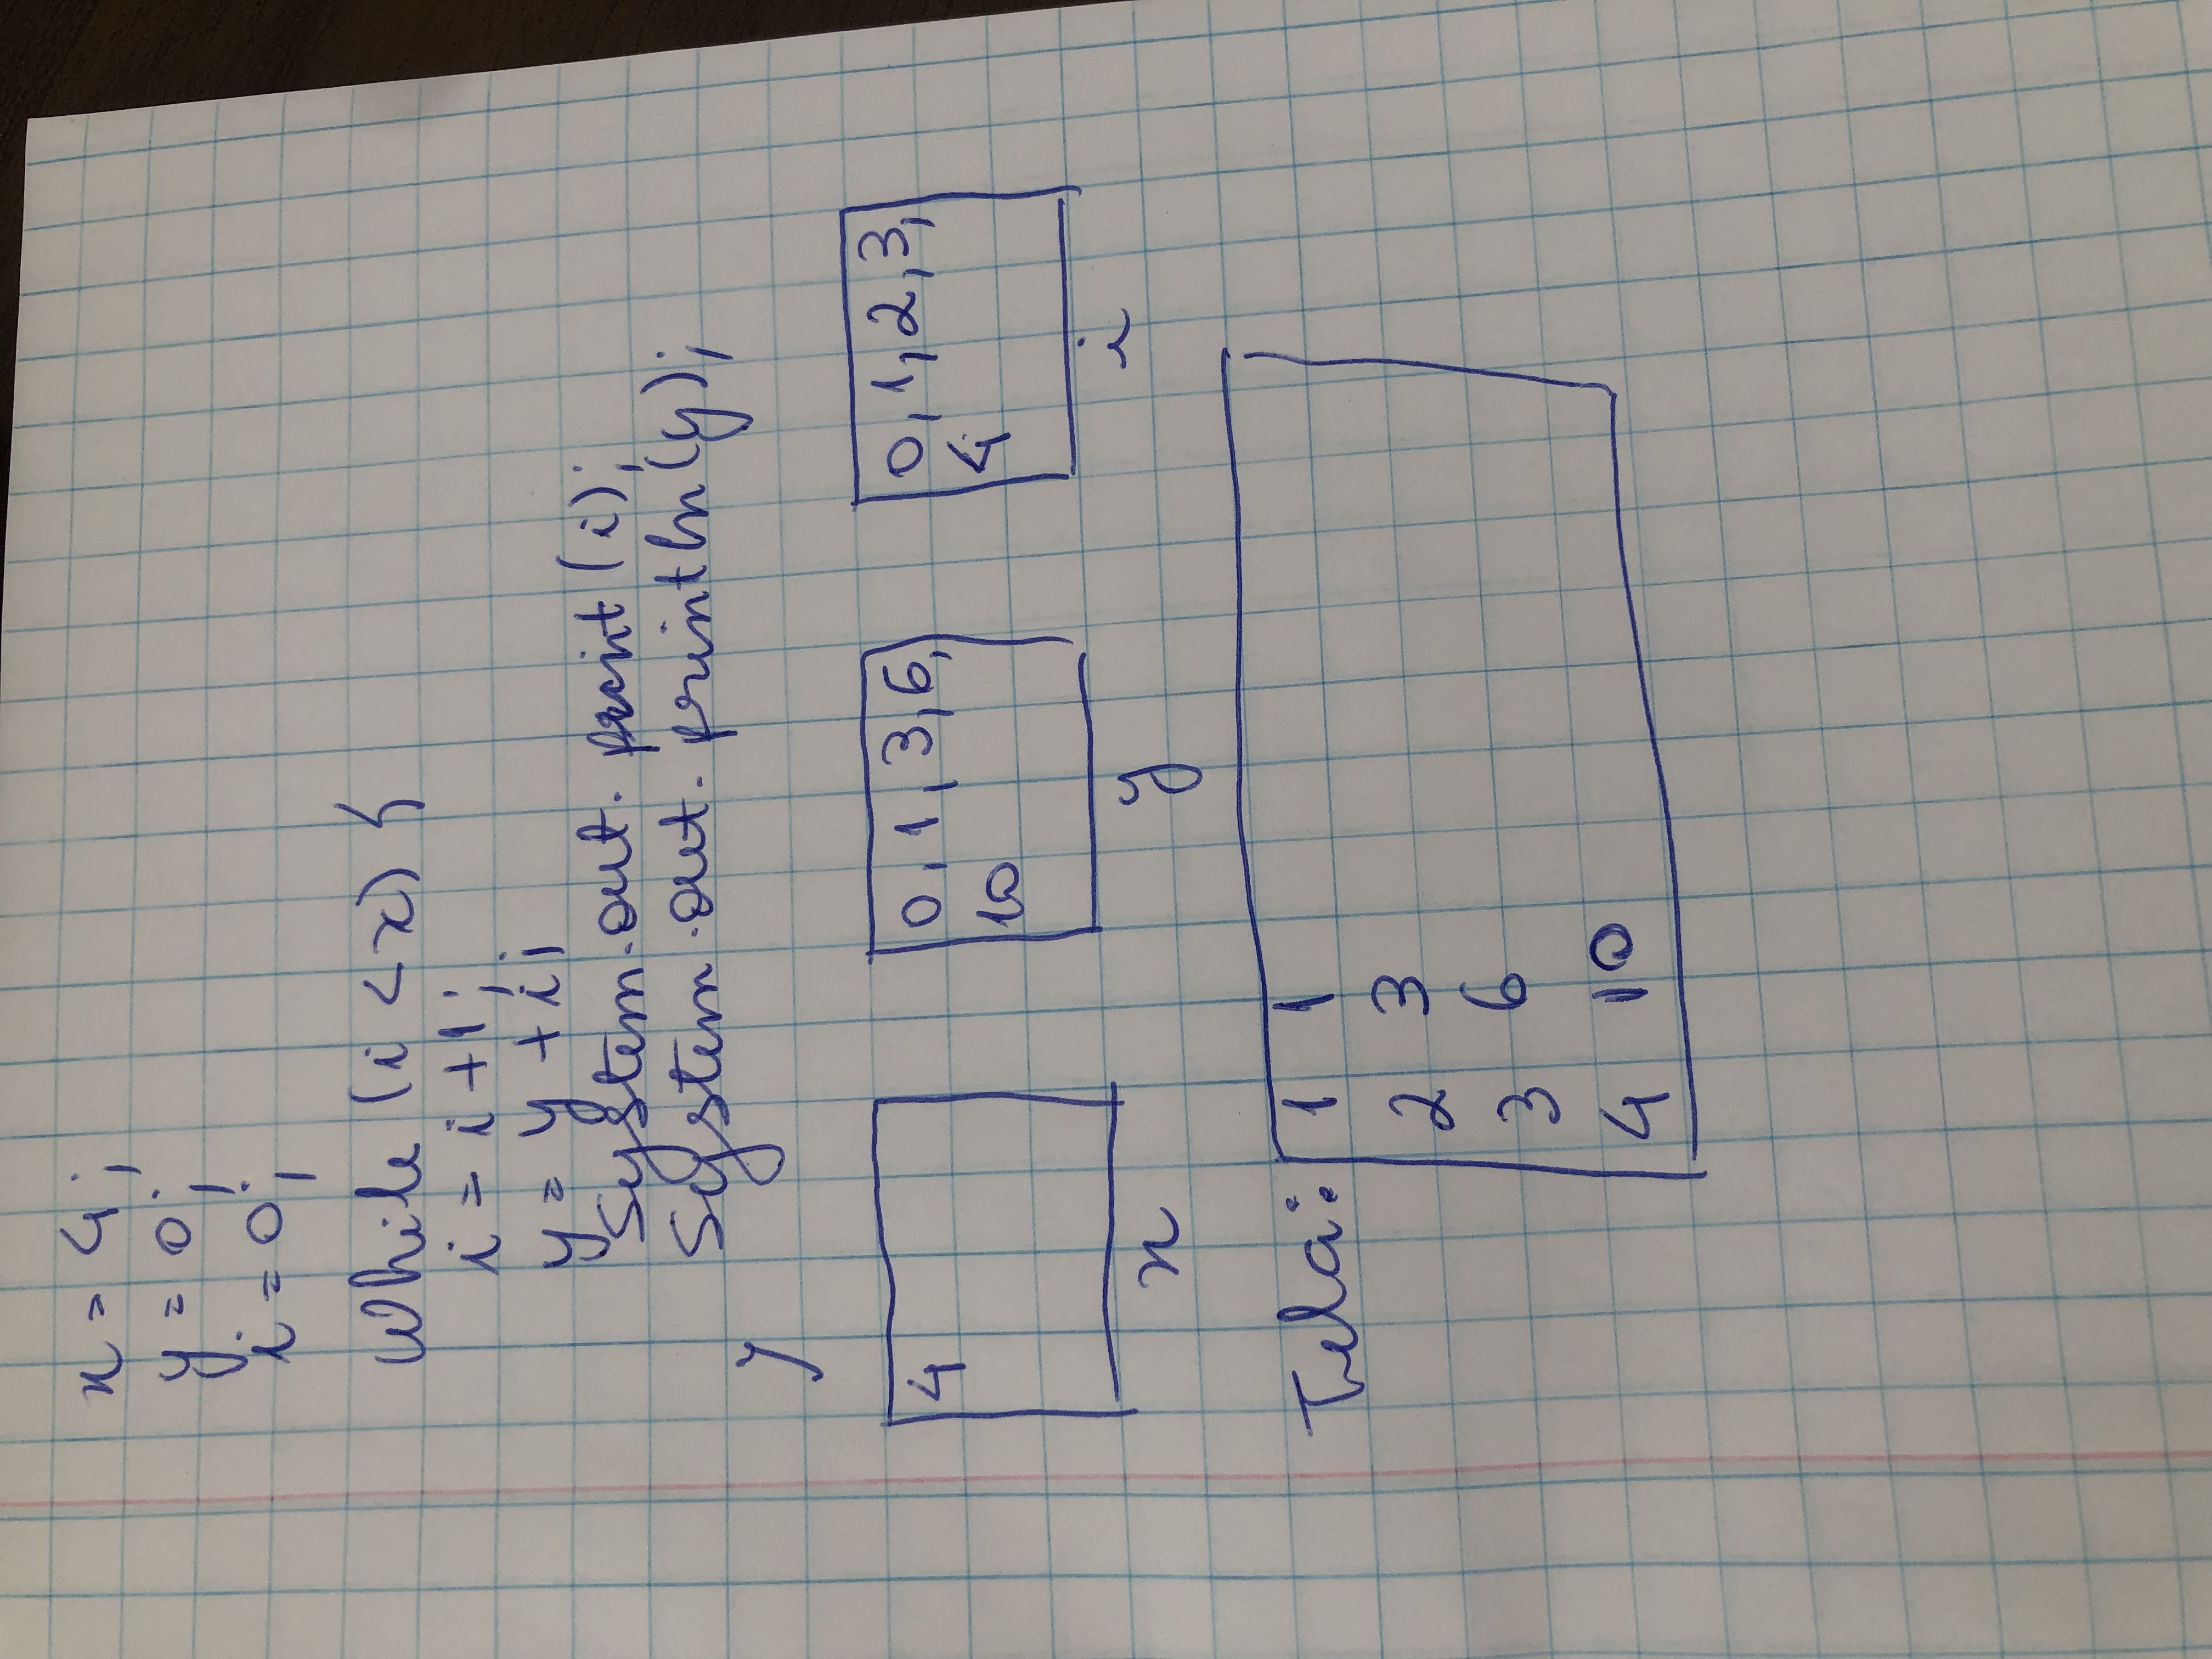 x = 4;
y = 0;
i = 0;
While (i < x) {
i = i + 1;
y = y + i;
System.out.print(i);
System.out.println(y);
}
4
0, 1, 3, 6,
10
0, 1, 2, 3,
4
x
y
i
Tela:
1 1
2 3
3 6
4 10